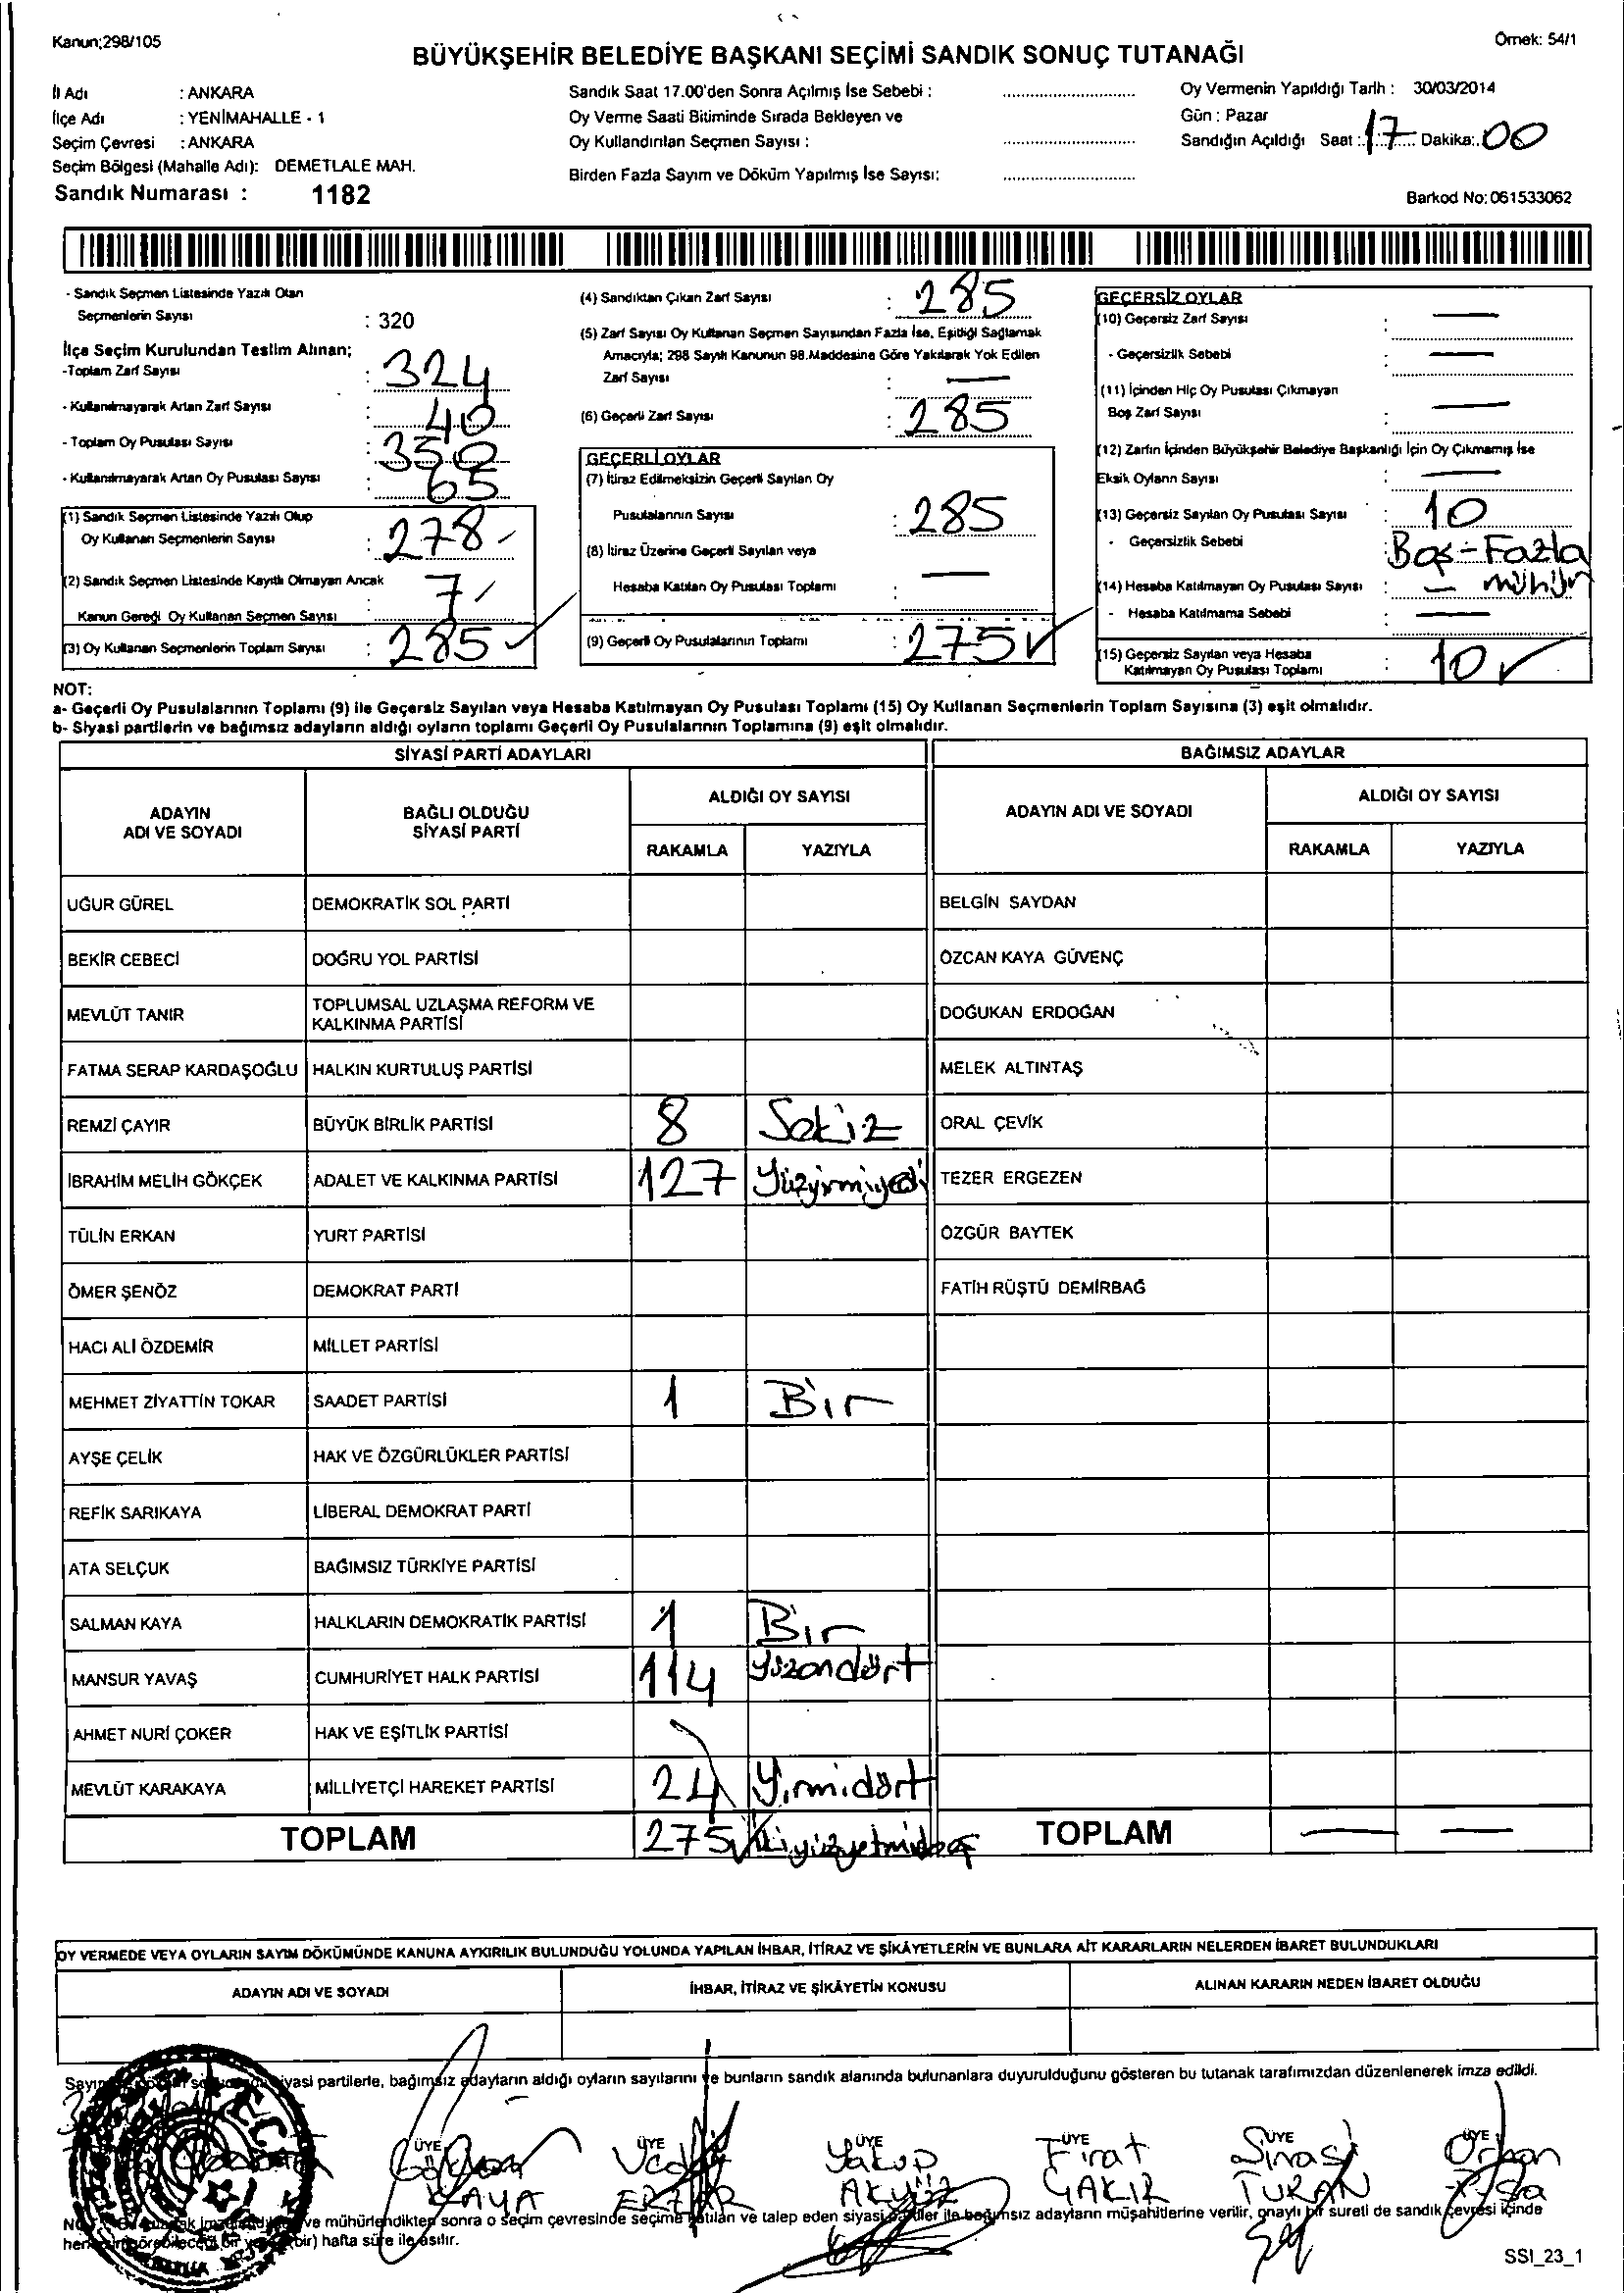 Kanun;298/105
Örnek: 54/1
BÜYÜKŞEHİR BELEDİYE BAŞKANI SEÇİMİ SANDIK SONUÇ TUTANAĞI
İl Adı : ANKARA
İlçe Adı : YENİMAHALLE - 1
Seçim Çevresi : ANKARA
Seçim Bölgesi (Mahalle Adı): DEMETLALE MAH.
Sandık Numarası : 1182
Sandık Saat 17.00'den Sonra Açılmış İse Sebebi :
Oy Verme Saati Bitiminde Sırada Bekleyen ve
Oy Kullandırılan Seçmen Sayısı :
Birden Fazla Sayım ve Döküm Yapılmış İse Sayısı:
Oy Vermenin Yapıldığı Tarih : 30/03/2014
Gün : Pazar
Sandığın Açıldığı Saat : 17 Dakika: 00
Barkod No: 061533062
- Sandık Seçmen Listesinde Yazılı Olan
Seçmenlerin Sayısı : 320
İlçe Seçim Kurulundan Teslim Alınan;
-Toplam Zarf Sayısı : 324
- Kullanılmayarak Artan Zarf Sayısı : 40
- Toplam Oy Pusulası Sayısı : 350
- Kullanılmayarak Artan Oy Pusulası Sayısı : 65
(1) Sandık Seçmen Listesinde Yazılı Olup
Oy Kullanan Seçmenlerin Sayısı : 278
(2) Sandık Seçmen Listesinde Kayıtlı Olmayan Ancak
Kanun Gereği Oy Kullanan Seçmen Sayısı : 7
(3) Oy Kullanan Seçmenlerin Toplam Sayısı : 285
(4) Sandıktan Çıkan Zarf Sayısı : 285
(5) Zarf Sayısı Oy Kullanan Seçmen Sayısından Fazla İse, Eşitliği Sağlamak
Amacıyla; 298 Sayılı Kanunun 98.Maddesine Göre Yakılarak Yok Edilen
Zarf Sayısı : —
(6) Geçerli Zarf Sayısı : 285
GEÇERLİ OYLAR
(7) İtiraz Edilmeksizin Geçerli Sayılan Oy
Pusulalarının Sayısı : 285
(8) İtiraz Üzerine Geçerli Sayılan veya
Hesaba Katılan Oy Pusulası Toplamı : —
(9) Geçerli Oy Pusulalarının Toplamı : 275
GEÇERSİZ OYLAR
(10) Geçersiz Zarf Sayısı : —
- Geçersizlik Sebebi : —
(11) İçinden Hiç Oy Pusulası Çıkmayan
Boş Zarf Sayısı : —
(12) Zarfın İçinden Büyükşehir Belediye Başkanlığı İçin Oy Çıkmamış İse
Eksik Oyların Sayısı : —
(13) Geçersiz Sayılan Oy Pusulası Sayısı : 10
- Geçersizlik Sebebi : Boş-Fazla
mühür
(14) Hesaba Katılmayan Oy Pusulası Sayısı : —
- Hesaba Katılmama Sebebi : —
(15) Geçersiz Sayılan veya Hesaba
Katılmayan Oy Pusulası Toplamı : 10
NOT:
a- Geçerli Oy Pusulalarının Toplamı (9) ile Geçersiz Sayılan veya Hesaba Katılmayan Oy Pusulası Toplamı (15) Oy Kullanan Seçmenlerin Toplam Sayısına (3) eşit olmalıdır.
b- Siyasi partilerin ve bağımsız adayların aldığı oyların toplamı Geçerli Oy Pusulalarının Toplamına (9) eşit olmalıdır.
SİYASİ PARTİ ADAYLARI
BAĞIMSIZ ADAYLAR
ADAYIN
ADI VE SOYADI
BAĞLI OLDUĞU
SİYASİ PARTİ
ALDIĞI OY SAYISI
RAKAMLA YAZIYLA
ADAYIN ADI VE SOYADI
ALDIĞI OY SAYISI
RAKAMLA YAZIYLA
UĞUR GÜREL DEMOKRATİK SOL PARTİ BELGİN SAYDAN
BEKİR CEBECİ DOĞRU YOL PARTİSİ ÖZCAN KAYA GÜVENÇ
MEVLÜT TANIR TOPLUMSAL UZLAŞMA REFORM VE
KALKINMA PARTİSİ DOĞUKAN ERDOĞAN
FATMA SERAP KARDAŞOĞLU HALKIN KURTULUŞ PARTİSİ MELEK ALTINTAŞ
REMZİ ÇAYIR BÜYÜK BİRLİK PARTİSİ 8 Sekiz ORAL ÇEVİK
İBRAHİM MELİH GÖKÇEK ADALET VE KALKINMA PARTİSİ 127 Yüzyirmiyedi TEZER ERGEZEN
TÜLİN ERKAN YURT PARTİSİ ÖZGÜR BAYTEK
ÖMER ŞENÖZ DEMOKRAT PARTİ FATİH RÜŞTÜ DEMİRBAĞ
HACI ALİ ÖZDEMİR MİLLET PARTİSİ
MEHMET ZİYATTİN TOKAR SAADET PARTİSİ 1 Bir
AYŞE ÇELİK HAK VE ÖZGÜRLÜKLER PARTİSİ
REFİK SARIKAYA LİBERAL DEMOKRAT PARTİ
ATA SELÇUK BAĞIMSIZ TÜRKİYE PARTİSİ
SALMAN KAYA HALKLARIN DEMOKRATİK PARTİSİ 1 Bir
MANSUR YAVAŞ CUMHURİYET HALK PARTİSİ 114 yüzondört
AHMET NURİ ÇOKER HAK VE EŞİTLİK PARTİSİ
MEVLÜT KARAKAYA MİLLİYETÇİ HAREKET PARTİSİ 24 Yirmidört
TOPLAM 275 ikiyüzyetmişbeş TOPLAM — —
OY VERMEDE VEYA OYLARIN SAYIM DÖKÜMÜNDE KANUNA AYKIRILIK BULUNDUĞU YOLUNDA YAPILAN İHBAR, İTİRAZ VE ŞİKÂYETLERİN VE BUNLARA AİT KARARLARIN NELERDEN İBARET BULUNDUKLARI
ADAYIN ADI VE SOYADI İHBAR, İTİRAZ VE ŞİKÂYETİN KONUSU ALINAN KARARIN NEDEN İBARET OLDUĞU
siyasi partilerle, bağımsız adayların aldığı oyların sayılarını ve bunların sandık alanında bulunanlara duyurulduğunu gösteren bu tutanak tarafımızdan düzenlenerek imza edildi.
ÜYE ÜYE ÜYE ÜYE ÜYE ÜYE
Gökhan Yakup Fırat Şinasi Orhan
KAYA AKYÜZ ÇAKIR TURAN
ve mühürlendikten sonra o seçim çevresinde seçime katılan ve talep eden siyasi partiler ile bağımsız adayların müşahitlerine verilir, onaylı bir sureti de sandık çevresi içinde
hafta süre ile asılır.
SSI_23_1